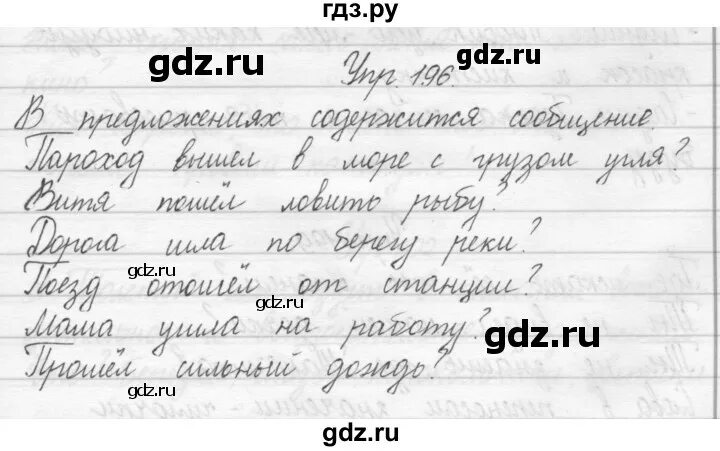 гдз.ру
gdz.ru
Упр. 196.
gdz.ru
В предложениях содержится сообщение
Пароход вышел в море с грузом угля?
Витя пошёл ловить рыбу?
Дорога шла по берегу реки?
gdz.ru
Поезд отошёл от станции?
gdz.ru
Мама ушла на работу?
gdz.ru
Прошёл сильный дождь?
gdz.ru
gdz.ru